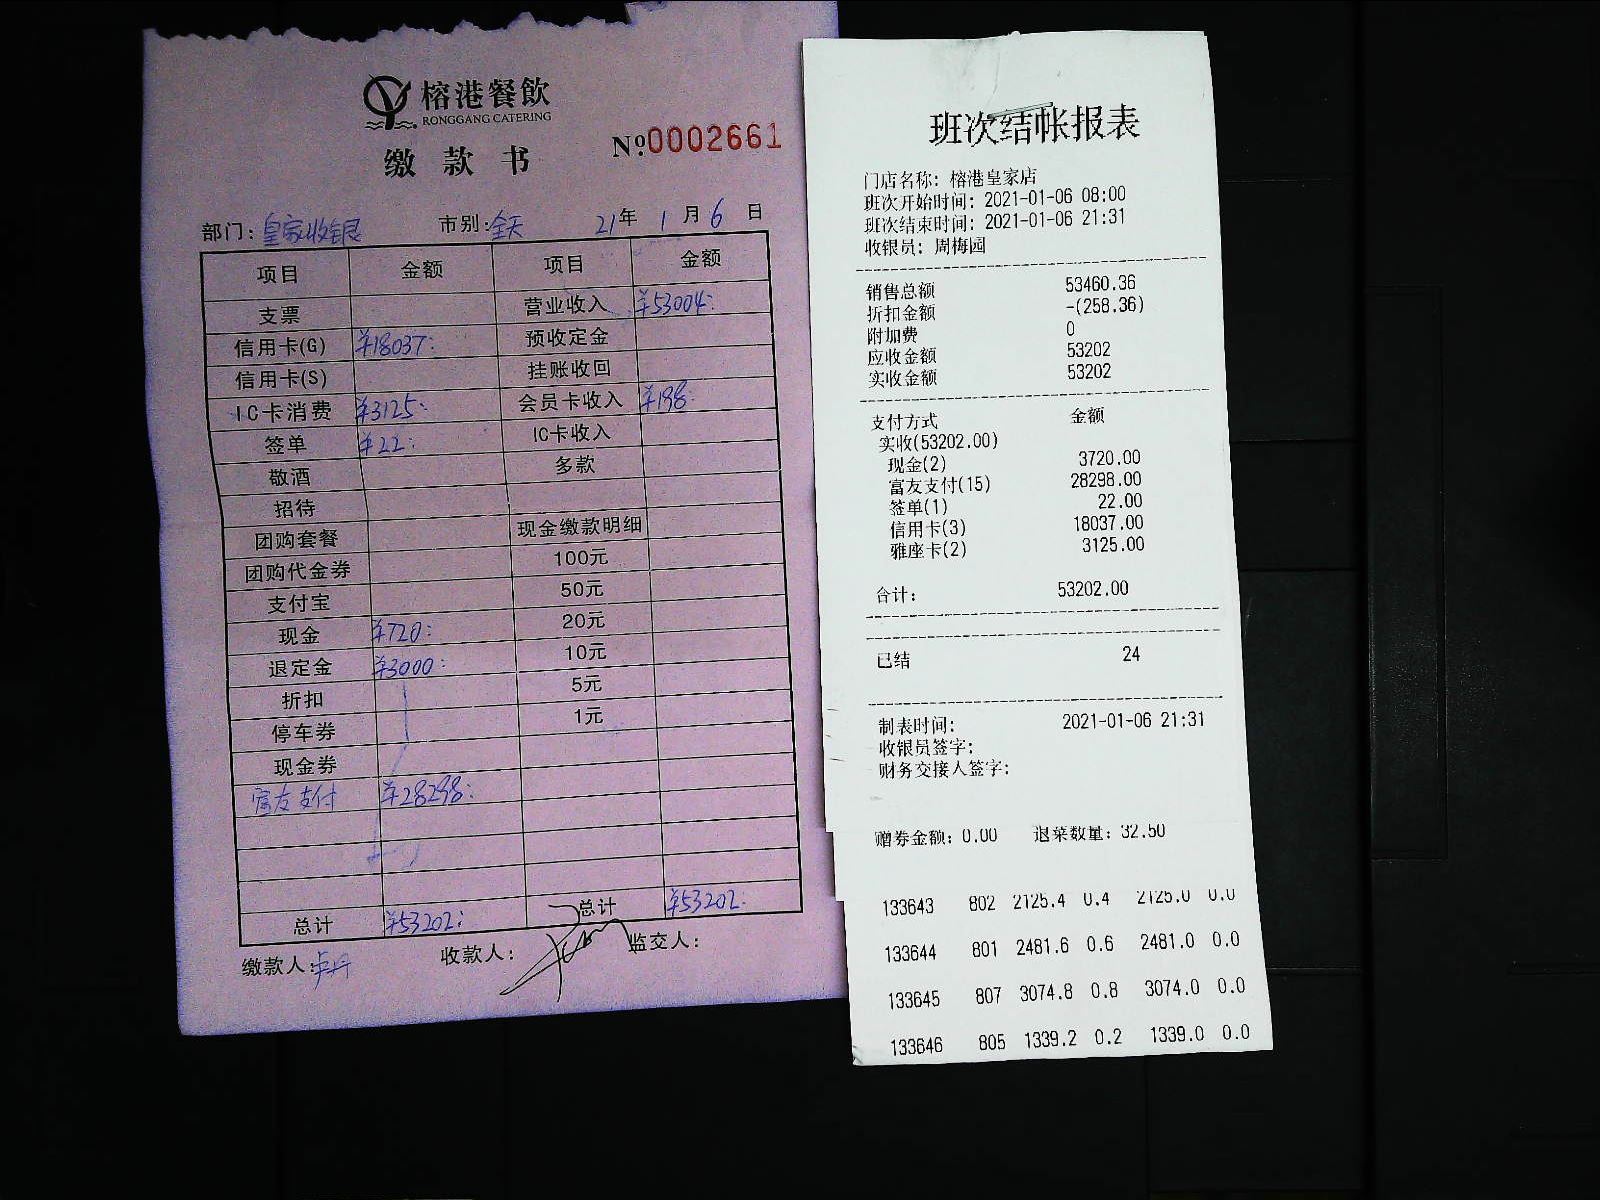 榕港餐飲
RONGGANG CATERING
缴款书
№0002661
部门：皇家收银 市别：全天 21年 1月 6日
项目 金额 项目 金额
支票 营业收入 ¥53004:
信用卡(G) ¥18037: 预收定金
信用卡(S) 挂账收回
IC卡消费 ¥3125: 会员卡收入 ¥198:
签单 ¥22: IC卡收入
敬酒 多款
招待
团购套餐 现金缴款明细
团购代金券 100元
支付宝 50元
现金 ¥720: 20元
退定金 ¥3000: 10元
折扣 5元
停车券 1元
现金券
富友支付 ¥28298:
总计 ¥53202: 总计 ¥53202:
缴款人: 收款人: 监交人:
班次结帐报表
门店名称: 榕港皇家店
班次开始时间: 2021-01-06 08:00
班次结束时间: 2021-01-06 21:31
收银员: 周梅园
销售总额 53460.36
折扣金额 -(258.36)
附加费 0
应收金额 53202
实收金额 53202
支付方式 金额
实收(53202.00)
现金(2) 3720.00
富友支付(15) 28298.00
签单(1) 22.00
信用卡(3) 18037.00
雅座卡(2) 3125.00
合计: 53202.00
已结 24
制表时间: 2021-01-06 21:31
收银员签字:
财务交接人签字:
赠券金额: 0.00 退菜数量: 32.50
133643 802 2125.4 0.4 2125.0 0.0
133644 801 2481.6 0.6 2481.0 0.0
133645 807 3074.8 0.8 3074.0 0.0
133646 805 1339.2 0.2 1339.0 0.0